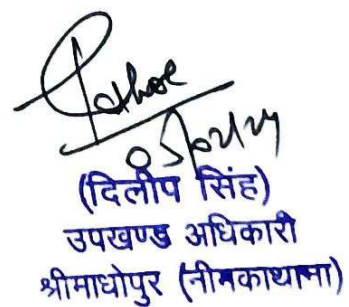 05/02/24
(दिलीप सिंह)
उपखण्ड अधिकारी
श्रीमाधोपुर (नीमकाथाना)